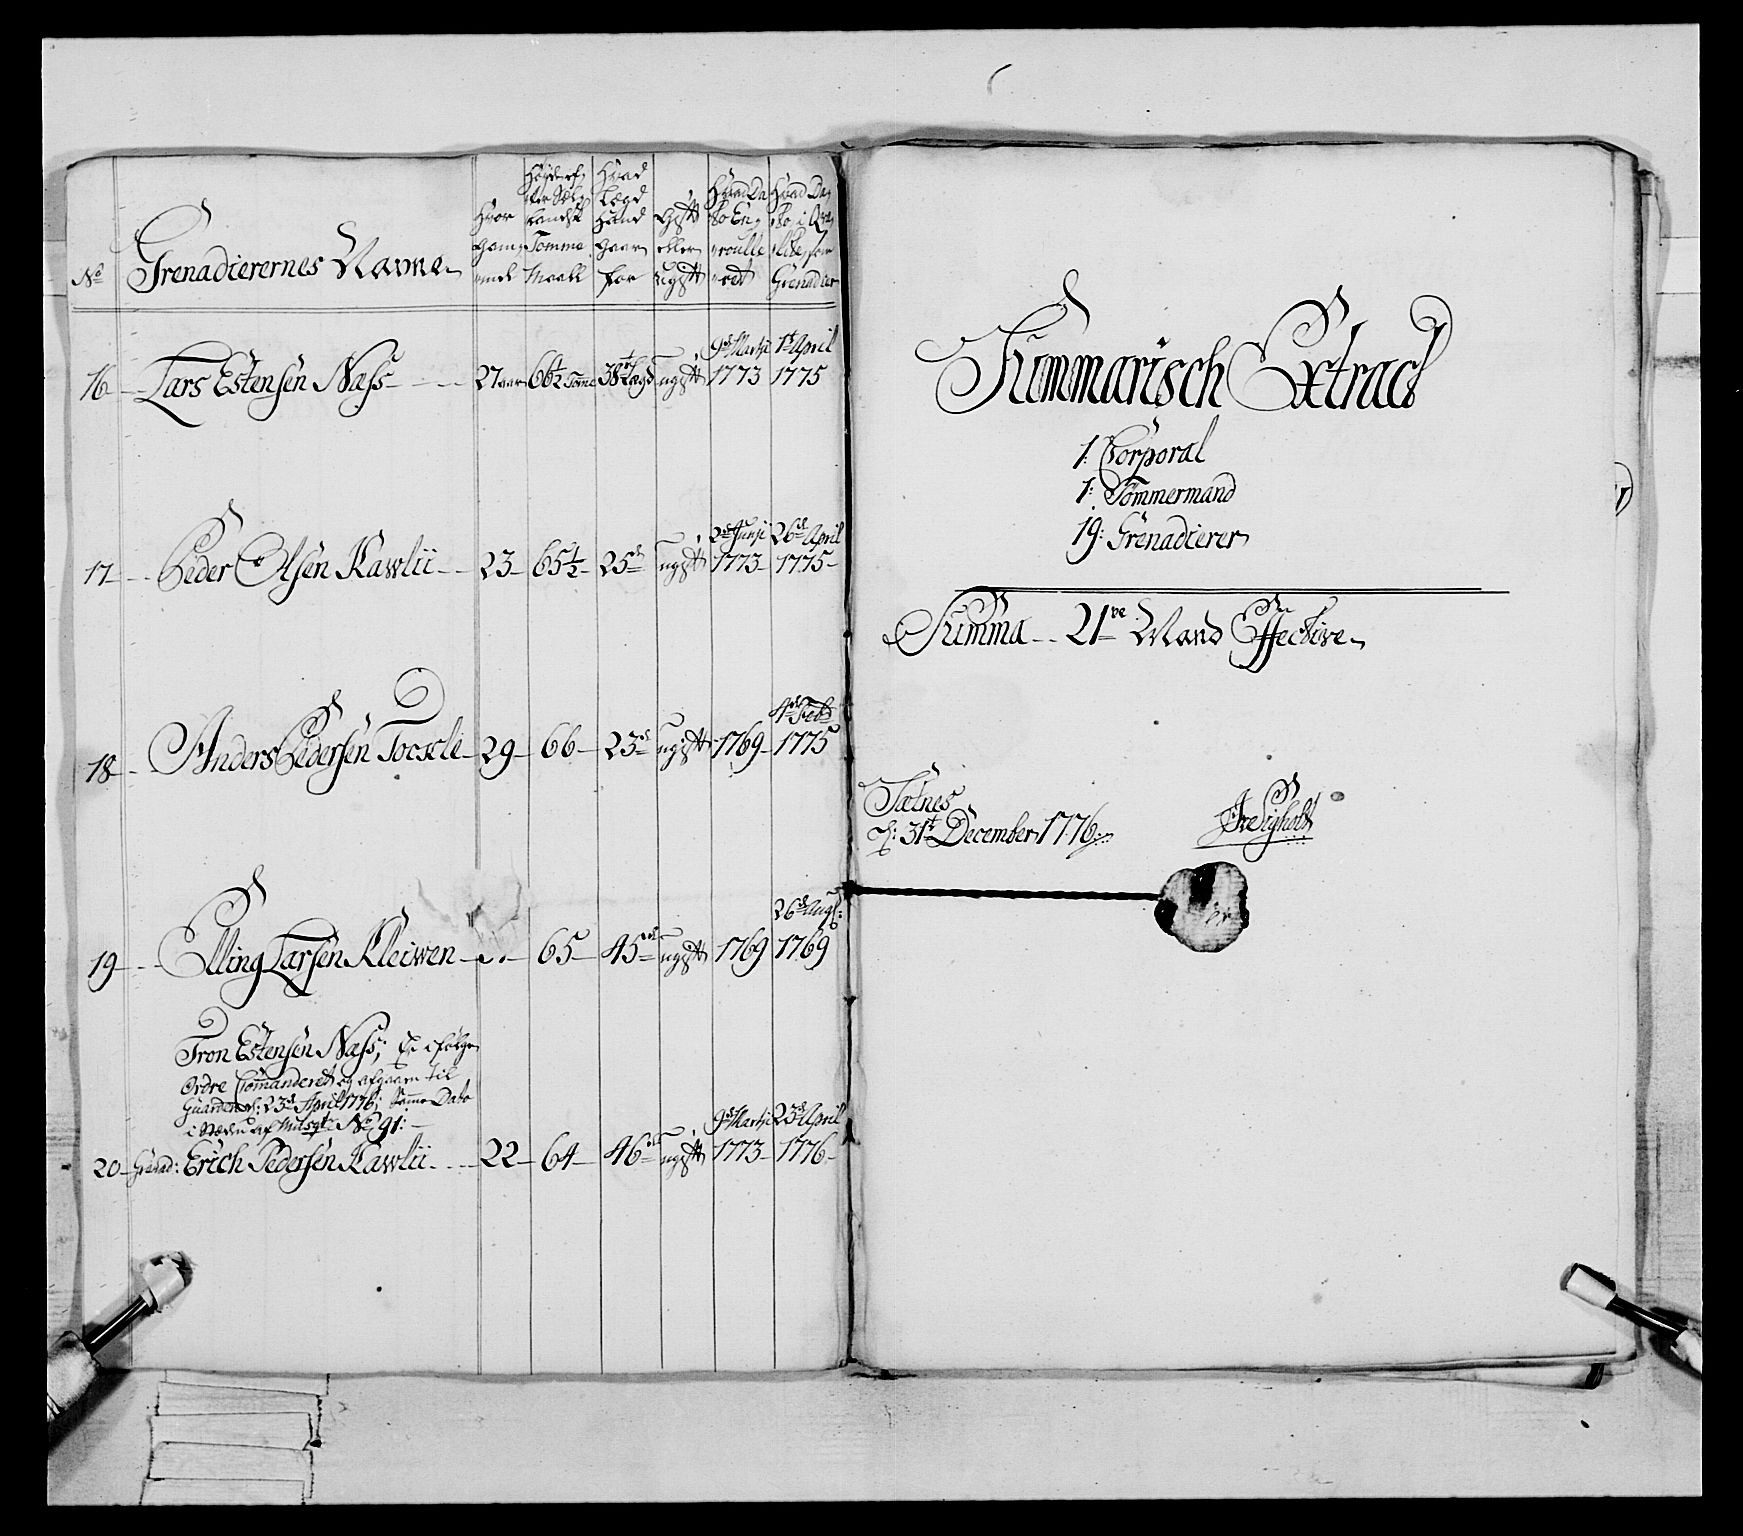 No
Grenadierernes Navne
Hvor gam, mel
Høyde ef, ter Siel, landsk Tomme Maall
Hvad Lægd Hand gaar for
Gift eller Ugift
Hvad Da, to En, roulle, ret
Hvad Da, to i Qua, litet som Grenadier
16 Lars Estensen Næss 27 aar 66½ Tome 38te Lægd ugift 9de Martji 1773 1st April 1775
17 Peder Olsen Kawlii 23 65½ 25de ugift 2de Junji 1773 26de April 1775
18 Anders Pedersen Toexle 29 66 23de ugift 1769 4de Feb 1775
19 Elling Larsen Kleiwen 65 45de ugift 1769 26de Augs: 1769
Tron Estensen Næss; Er efølge
Ordre Commanderet og afgaaen til
Guarden d: 23de April 1776; Samme Dato
i Stæden af Musqt No 91:
20 Grenad: Erich Pedersen Kawlii 22 64 46de ugift 9de Martji 1773 23de April 1776
Summarisch Extract
1: Corporal
1: Tømmermand
19: Grenadierer
Summa 21ve Mand Effective
Tætnes
d: 31t December 1776